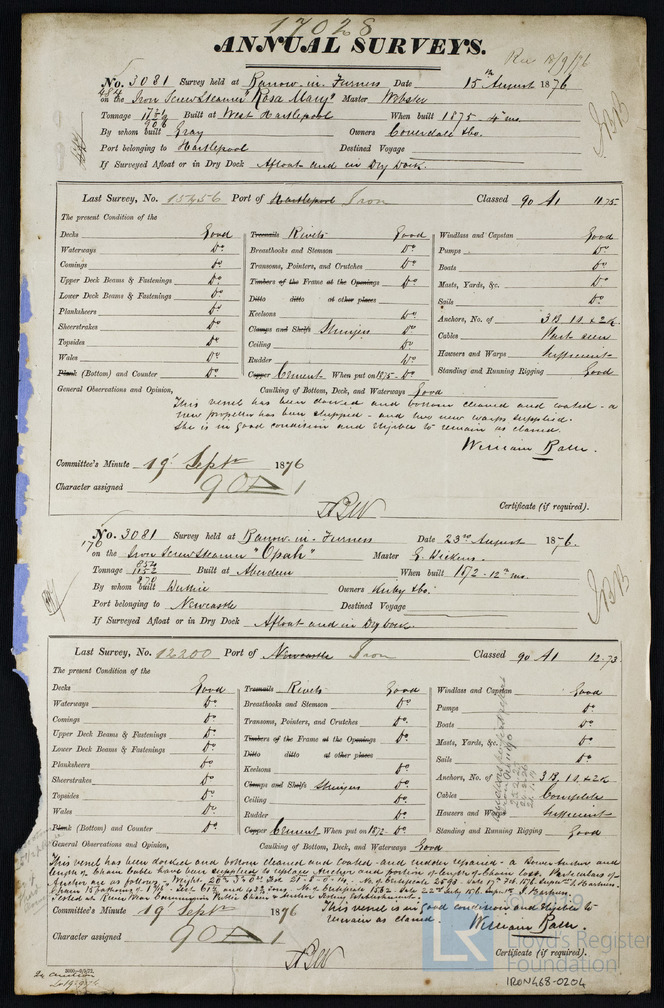 17028
ANNUAL SURVEYS.
Rec 18/9/76
No. 3081 Survey held at Barrow-in-Furness Date 15th August 1876
on the Iron Screw Steamer "Rosa Mary" Master Webster
Tonnage Built at West Hartlepool When built 1875 - 4 mo.
By whom built Gray Owners Coverdale & Co.
Port belonging to Hartlepool Destined Voyage
If Surveyed Afloat or in Dry Dock Afloat and in Dry Dock.
Last Survey, No. 15456 Port of Hartlepool Iron Classed 90 A1 11.75
The present Condition of the
Decks Good Treenails Rivets Good Windlass and Capstan Good
Waterways Do Breasthooks and Stemson Do Pumps Do
Comings Do Transoms, Pointers, and Crutches Do Boats Do
Upper Deck Beams & Fastenings Do Timbers of the Frame at the Openings Do Masts, Yards, &c. Do
Lower Deck Beams & Fastenings Do Ditto ditto at other places Sails Do
Planksheers Do Keelsons Do Anchors, No. of 3B, 1S. & 2K.
Sheerstrakes Do Clamps and Shelfs Stringers Do Cables Part seen
Topsides Do Ceiling Do Hawsers and Warps Sufficient
Wales Do Rudder Do Standing and Running Rigging Good
Plank (Bottom) and Counter Do Copper Cement When put on 1875 - Do
General Observations and Opinion, Caulking of Bottom, Deck, and Waterways Good
This vessel has been docked and bottom cleaned and coated - a
new propeller has been shipped - and two new warps supplied.
She is in good condition and eligible to remain as classed.
William Bath.
Committee's Minute 19th Septr 1876
Character assigned 90 A 1
Certificate (if required).
No. 3081 Survey held at Barrow-in-Furness Date 23rd August 1876.
on the Iron Screw Steamer "Opah" Master
Tonnage Built at Aberdeen When built 1872 - 12th mo.
By whom built Duthie Owners Kirby & Co.
Port belonging to Newcastle Destined Voyage
If Surveyed Afloat or in Dry Dock Afloat and in Dry Dock.
Last Survey, No. 12200 Port of Newcastle Iron Classed 90 A1 12.73
The present Condition of the
Decks Good Treenails Rivets Good Windlass and Capstan Good
Waterways Do Breasthooks and Stemson Do Pumps Do
Comings Do Transoms, Pointers, and Crutches Do Boats Do
Upper Deck Beams & Fastenings Do Timbers of the Frame at the Openings Do Masts, Yards, &c. Do
Lower Deck Beams & Fastenings Do Ditto ditto at other places Sails Do
Planksheers Do Keelsons Do Anchors, No. of 3B, 1S. & 2K
Sheerstrakes Do Clamps and Shelfs Stringers Do Cables Complete
Topsides Do Ceiling Do Hawsers and Warps Sufficient
Wales Do Rudder Do Standing and Running Rigging Good
Plank (Bottom) and Counter Do Copper Cement When put on 1872 - Do
General Observations and Opinion, Caulking of Bottom, Deck, and Waterways Good
This vessel has been docked and bottom cleaned and coated - and rudder repaired - a Bower Anchor and
length of Chain Cable have been supplied to replace Anchor and portion of length of Chain lost. Particulars of
Anchor are as follows: Weight
Chain 15 fathoms of
Tested at River Wear Commissioners Public Chain & Anchor Testing Establishment.
This vessel is in good condition and eligible to
remain as classed. William Bath.
Committee's Minute 19th Septr 1876
Character assigned 90 A 1
Certificate (if required).
© 2019
LR
Lloyd's Register
Foundation
IRON468-0204